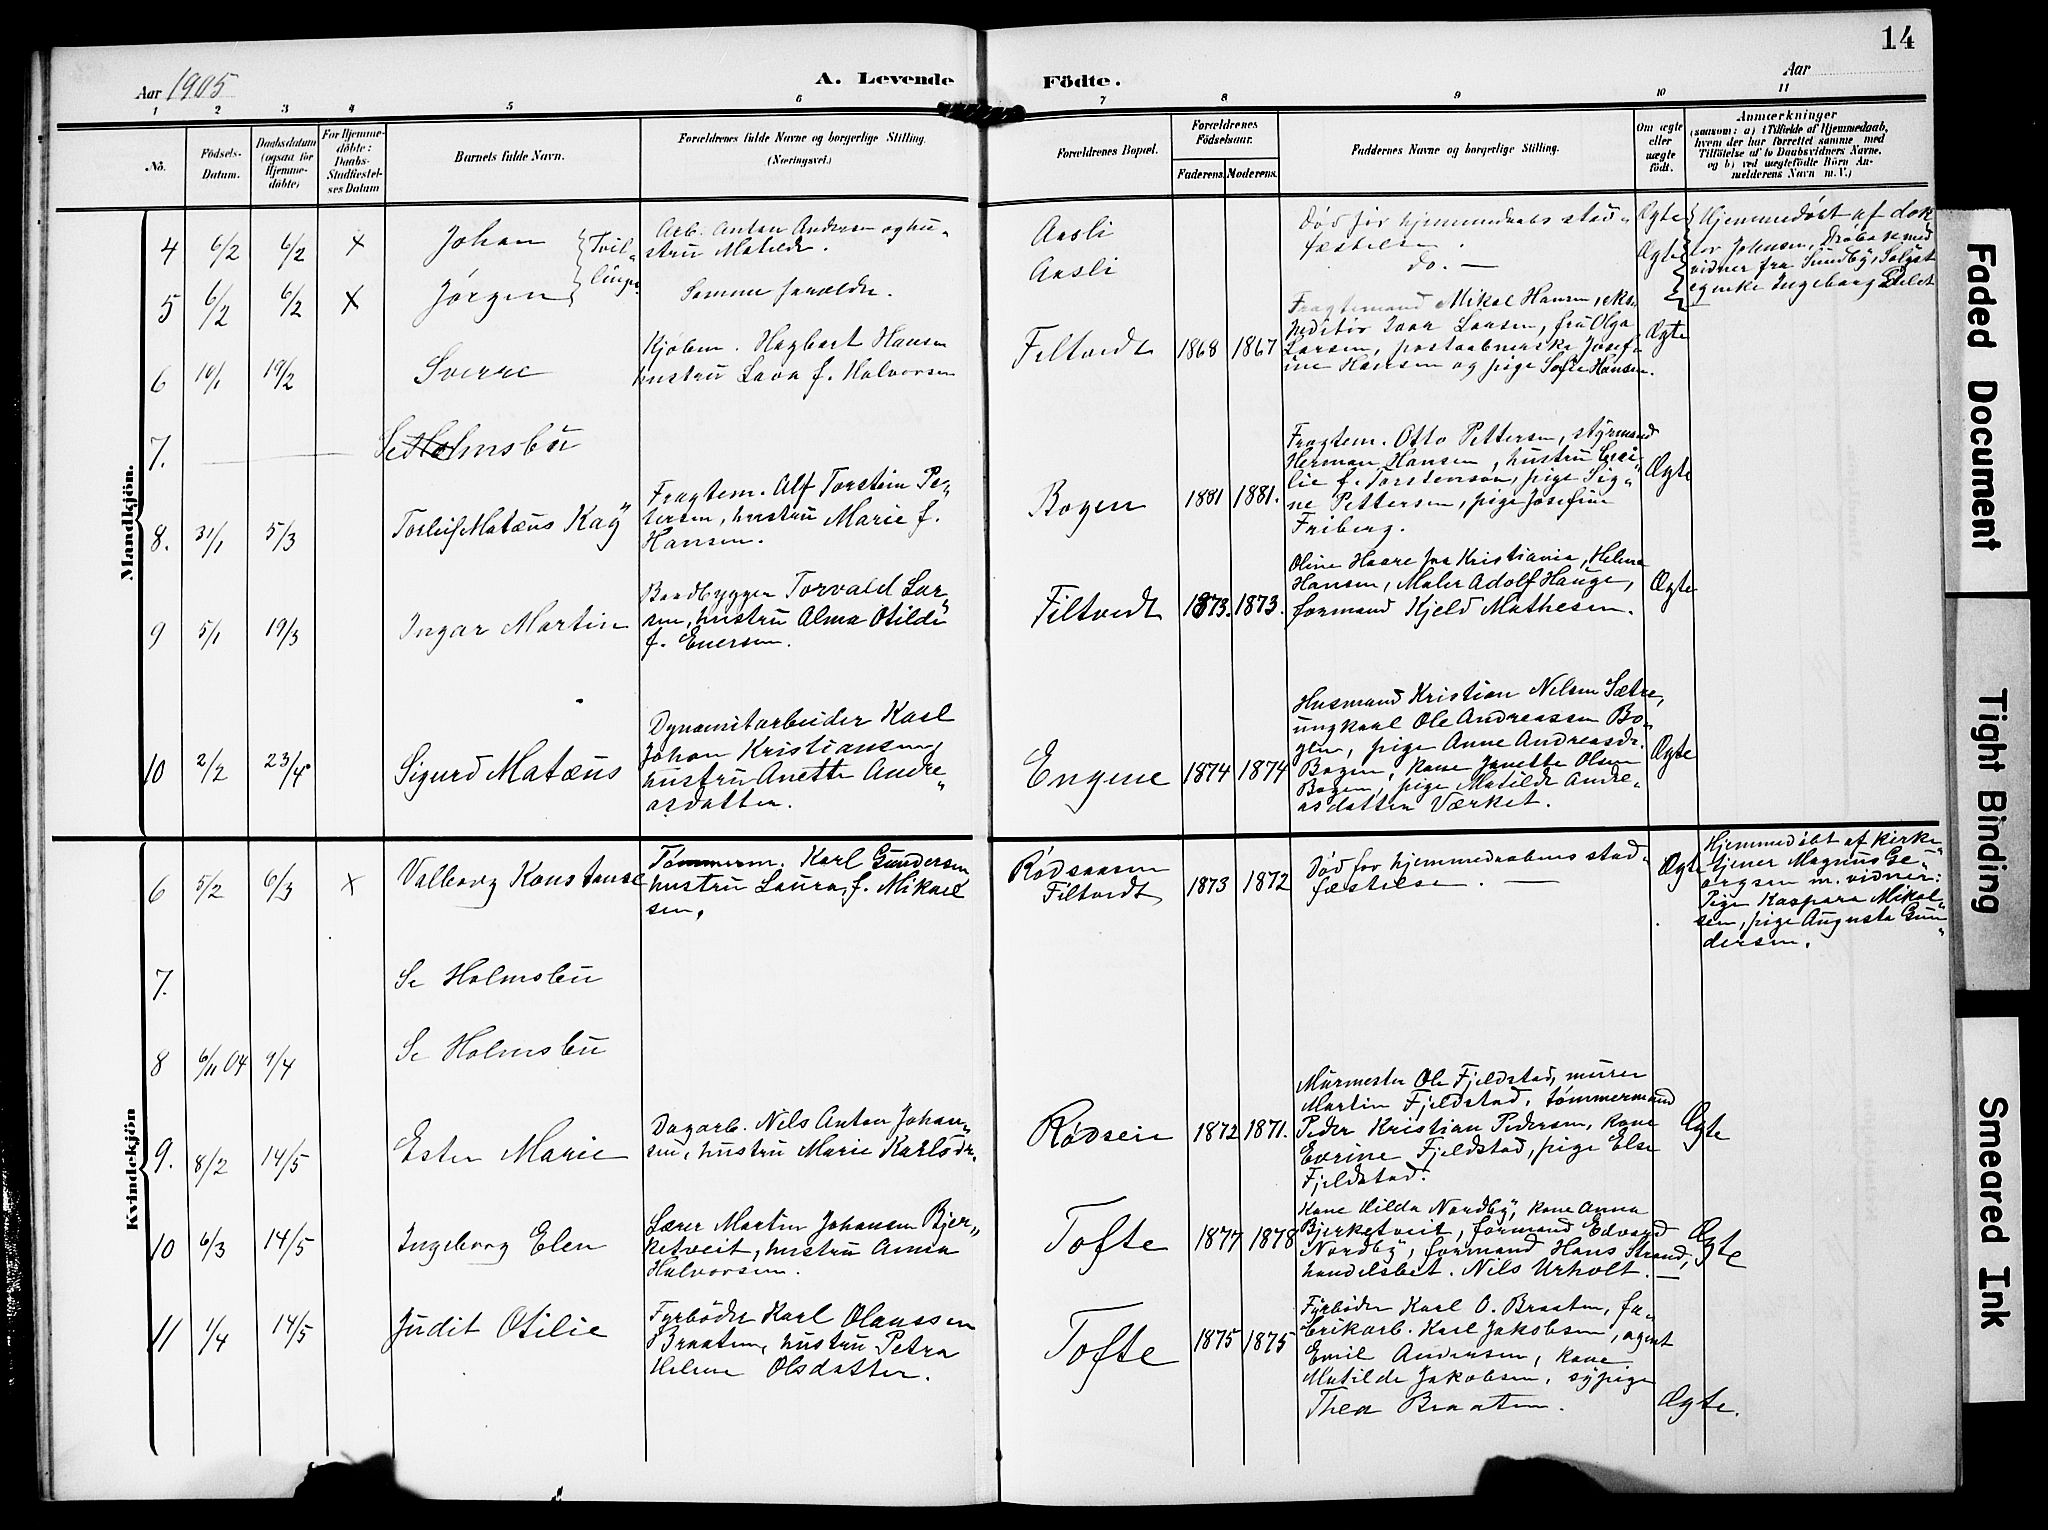 14
Aar 1905
A. Levende
Födte.
Aar
1 2 3 4 5 6 7 8 9 10 11
No.
Födsels-
Datum.
Daabsdatum
(ogsaa for
Hjemme-
döbte)
For Hjemme-
döbte:
Daabs-
Stadfæstel-
ses Datum
Barnets fulde Navn.
Forældrenes fulde Navne og borgerlige Stilling.
(Næringsvei.)
Forældrenes Bopæl.
Forældrenes
Födselsaar.
Faderens.
Moderens.
Faddernes Navne og borgerlige Stilling.
Om ægte
eller
uægte
født.
Anmærkninger
(saasom: a) i Tilfælde af Hjemmedaab,
hvem der har forrettet samme, med
Tilföielse af to Daabsvidners Navne,
og b) ved uægtefödte Börn An-
melderens Navn m. V.)
Mandkjön.
4 6/2 6/2 x Johan Tvil-
Arb. Anton Andersen og hu-
stru Matilde.
Aasli
Død før hjemmedaabs stad-
fæstelse.
Ægte
Hjemmedøbt af dok
tor Johnsen, Drøbak med
vidner fra Sundby,
enke Ingeborg
5 6/2 6/2 x Jørgen linger
Samme forældre.
Aasli
do. —
Ægte
6 10/1 19/2 Sverre
Kjøbm. Hagbart Hansen
hustru Lava f. Halvorsen
Filtvedt 1868 1867
Fragtemand Mikal Hansen, eks-
peditør Ivar Larsen, fru Olga
Larsen, postaabnerske Josef-
ine Hansen og pige Sofie Hansen.
Ægte
7. Se Holmsbu
8. 31/1 5/3 Torleif Matæus Kaÿ
Fragtem. Alf Torstein Pe-
tersen, hustru Marie f.
Hansen.
Bogen 1881 1881.
Fragtem. Otto Pettersen, styrmand
Herman Hansen, hustru Cesi-
lie f. Torstenson, pige Sig-
ne Pettersen, pige Josefine
Friberg.
Ægte
9 5/1 19/3 Ingar Martin
Baadbygger Torvald Lar-
sen, hustru Alma Otilde
f. Enersen.
Filtvedt 1873. 1873.
Oline Haare fra Kristiania, Helena
Hansen, Maler Adolf Hauge,
formand Kjeld Mathesen.
Ægte
10 2/2 23/4 Sigurd Matæus
Dynamitarbeider Karl
Johan Kristiansen
hustru Anette Andre-
asdatter.
Engene 1874 1874
Husmand Kristian Nilsen Sætre,
ungkarl Ole Andreassen Bo-
gen, pige Anne Andreasdr.
Bogen, kone Janette Olsen
Bogen, pige Matilde Andre-
asdatter Værket.
Ægte
Kvindekjön
6 5/2 6/3 x Valborg Konstanse
Tømmerm. Karl Gundersen
hustru Laura, f. Mikael
sen.
Rødsaasen
Filtvedt 1873 1872
Død før hjemmedaabens stad-
fæstelse. —
Ægte
Hjemmedøbt af kirke-
tjener Magnus Ge-
orgsen m. vidner:
Pige Kaspara Mikal-
sen, pige Augusta Gun-
dersen.
7. Se Holmsbu
8 6/11 04 9/4 Se Holmsbu
9. 8/2 14/5 Ester Marie
Dagarb. Nils Anton Johan-
sen, hustru Marie Karlsdr.
Rødsein 1872 1871.
Murmester Ole Fjeldstad, murer
Martin Fjeldstad, tømmermand
Peder Kristian Pedersen, kone
Evrine Fjeldstad, pige Else
Fjeldstad.
Ægte
10 6/3 14/5 Ingeborg Elen
Lærer Martin Johansen Bjer-
ketveit, hustru Anna
Halvorsen.
Tofte 1877 1878
Kone Hilda Nordbÿ, kone Anna
Bjerketveit, formand Edvard
Nordbÿ, formand Hans Strand,
handelsbet. Nils Urholt. —
Ægte
11 1/4 14/5 Judit Otilie
Fyrbøder Karl Olaussen
Braaten, hustru Petra
Helene Olsdatter.
Tofte 1875 1875
Fyrbøder Karl O. Braaten, fa-
brikarb. Karl Jakobsen, agent
Emil Andersen, kone
Matilde Jakobsen, sypige
Thea Braaten.
Ægte.
Faded Document
Tight Binding
Smeared Ink